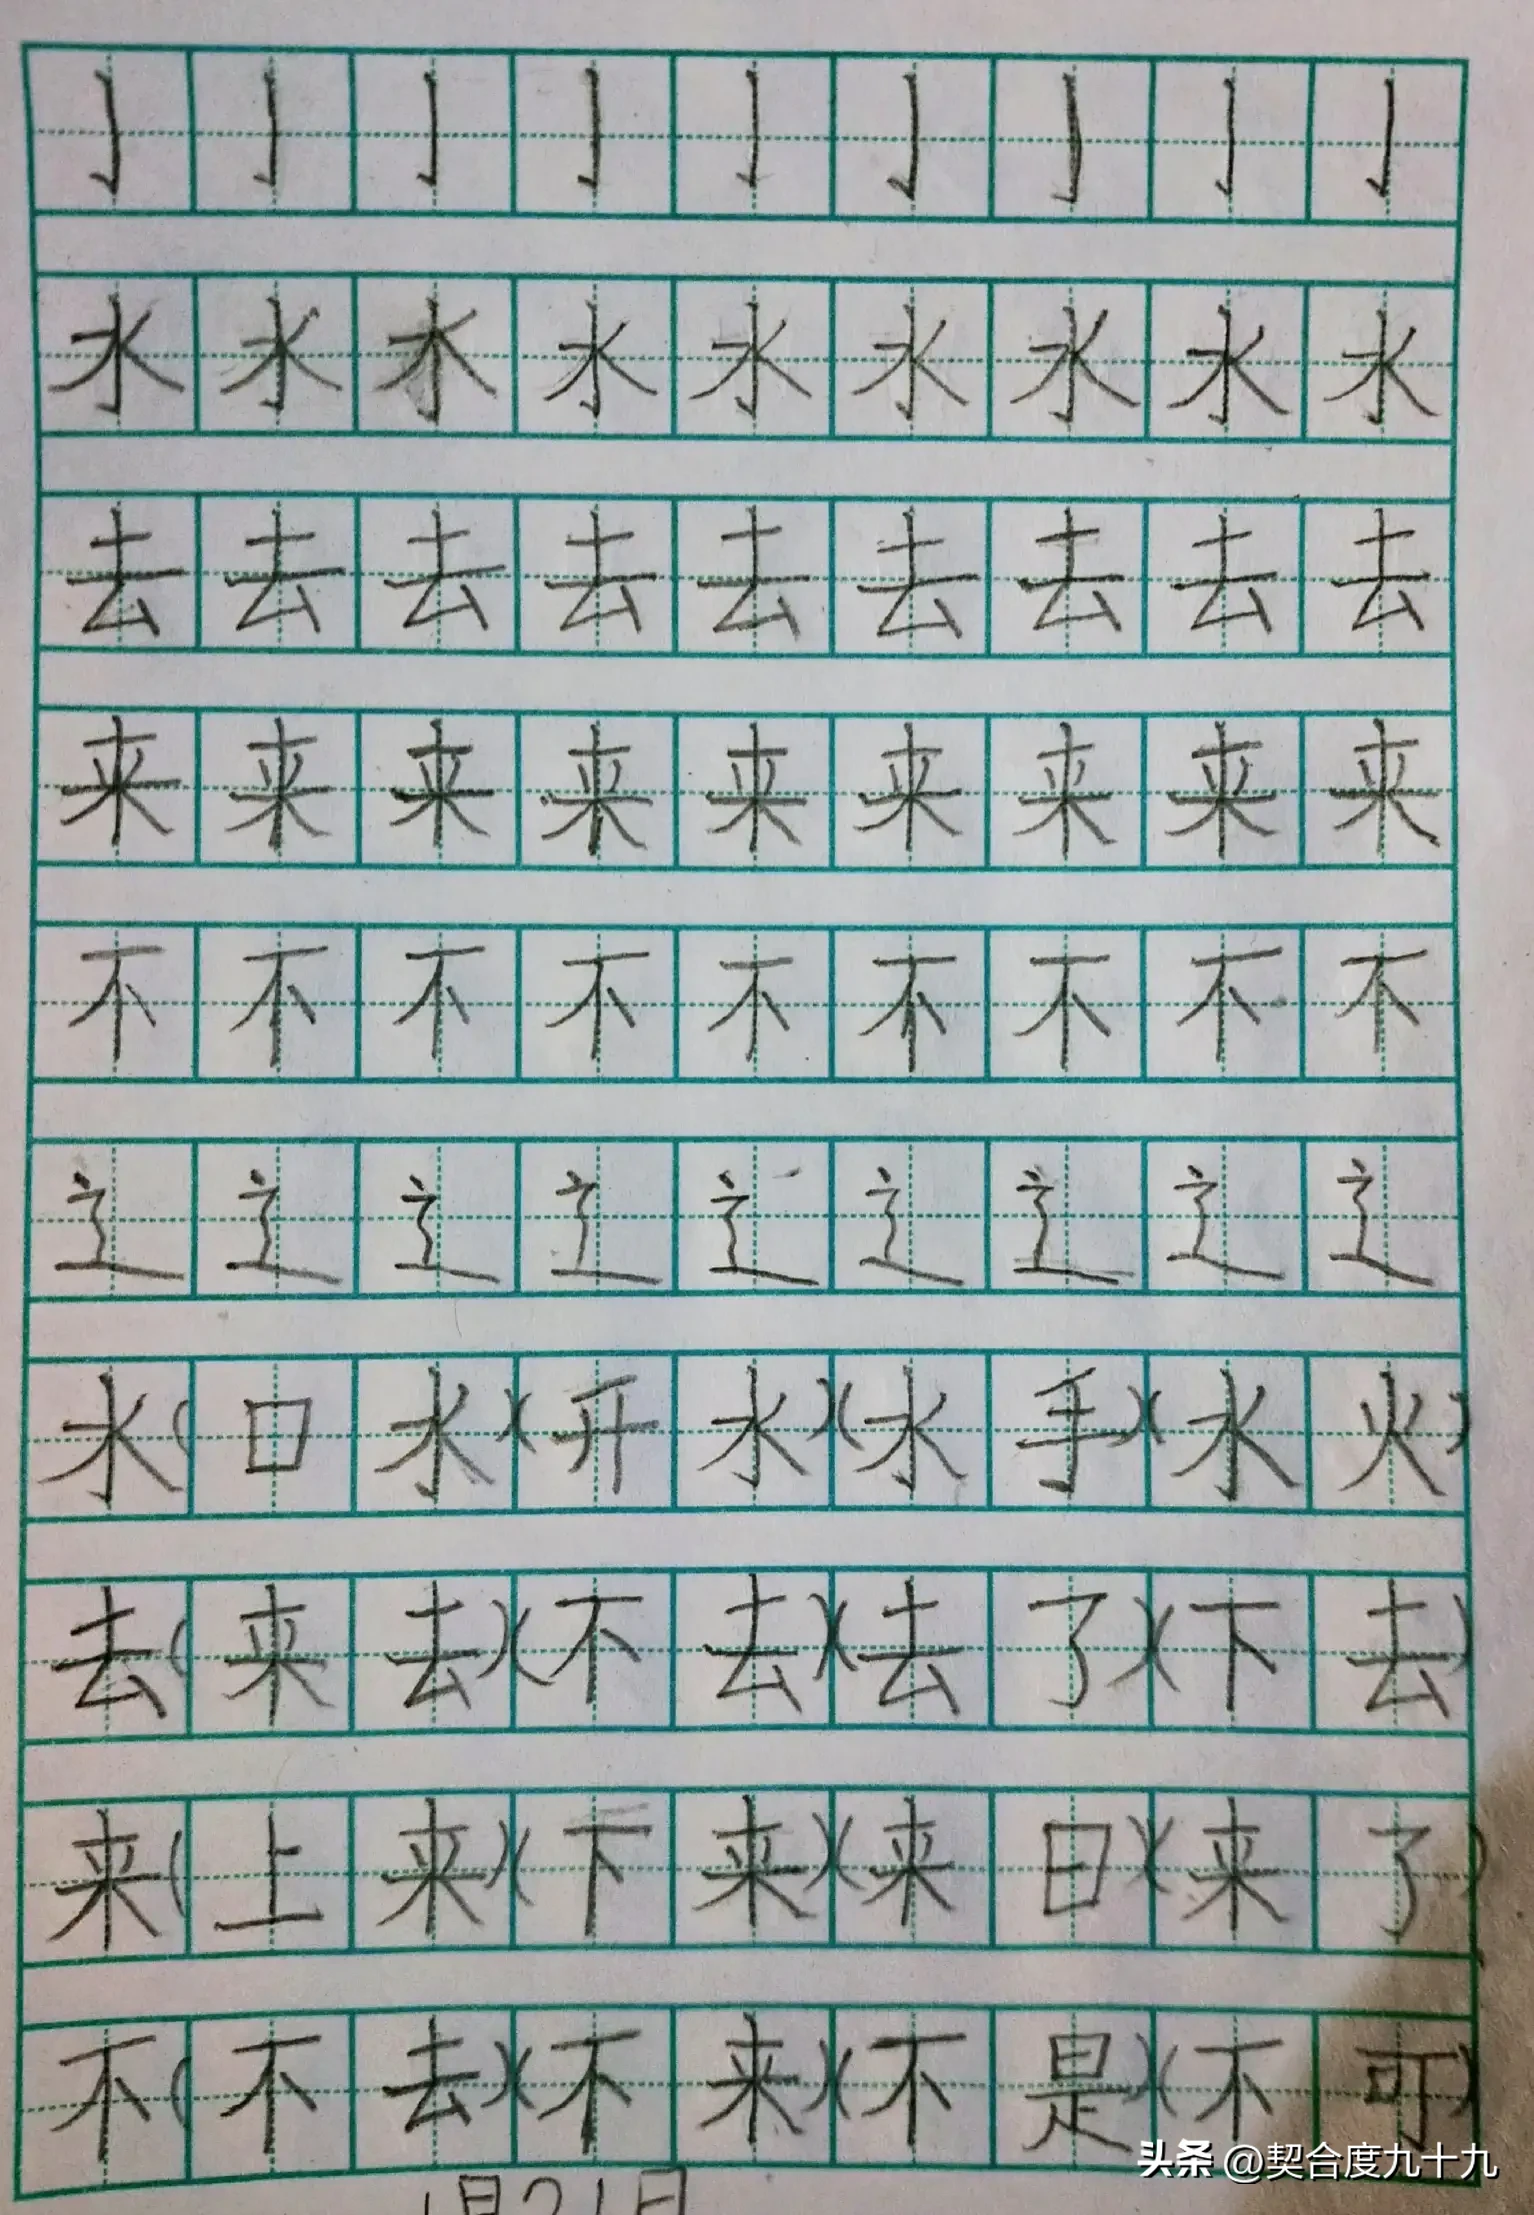 亅亅亅亅亅亅亅亅亅
水水水水水水水水水
去去去去去去去去去
来来来来来来来来来
不不不不不不不不不
辶辶辶辶辶辶辶辶辶
水(口水)(开水)(水手)(水火)
去(来去)(不去)(去了)(下去)
来(上来)(下来)(来日)(来了)
不(不去)(不来)(不是)(不可)
1月21日
头条 @契合度九十九